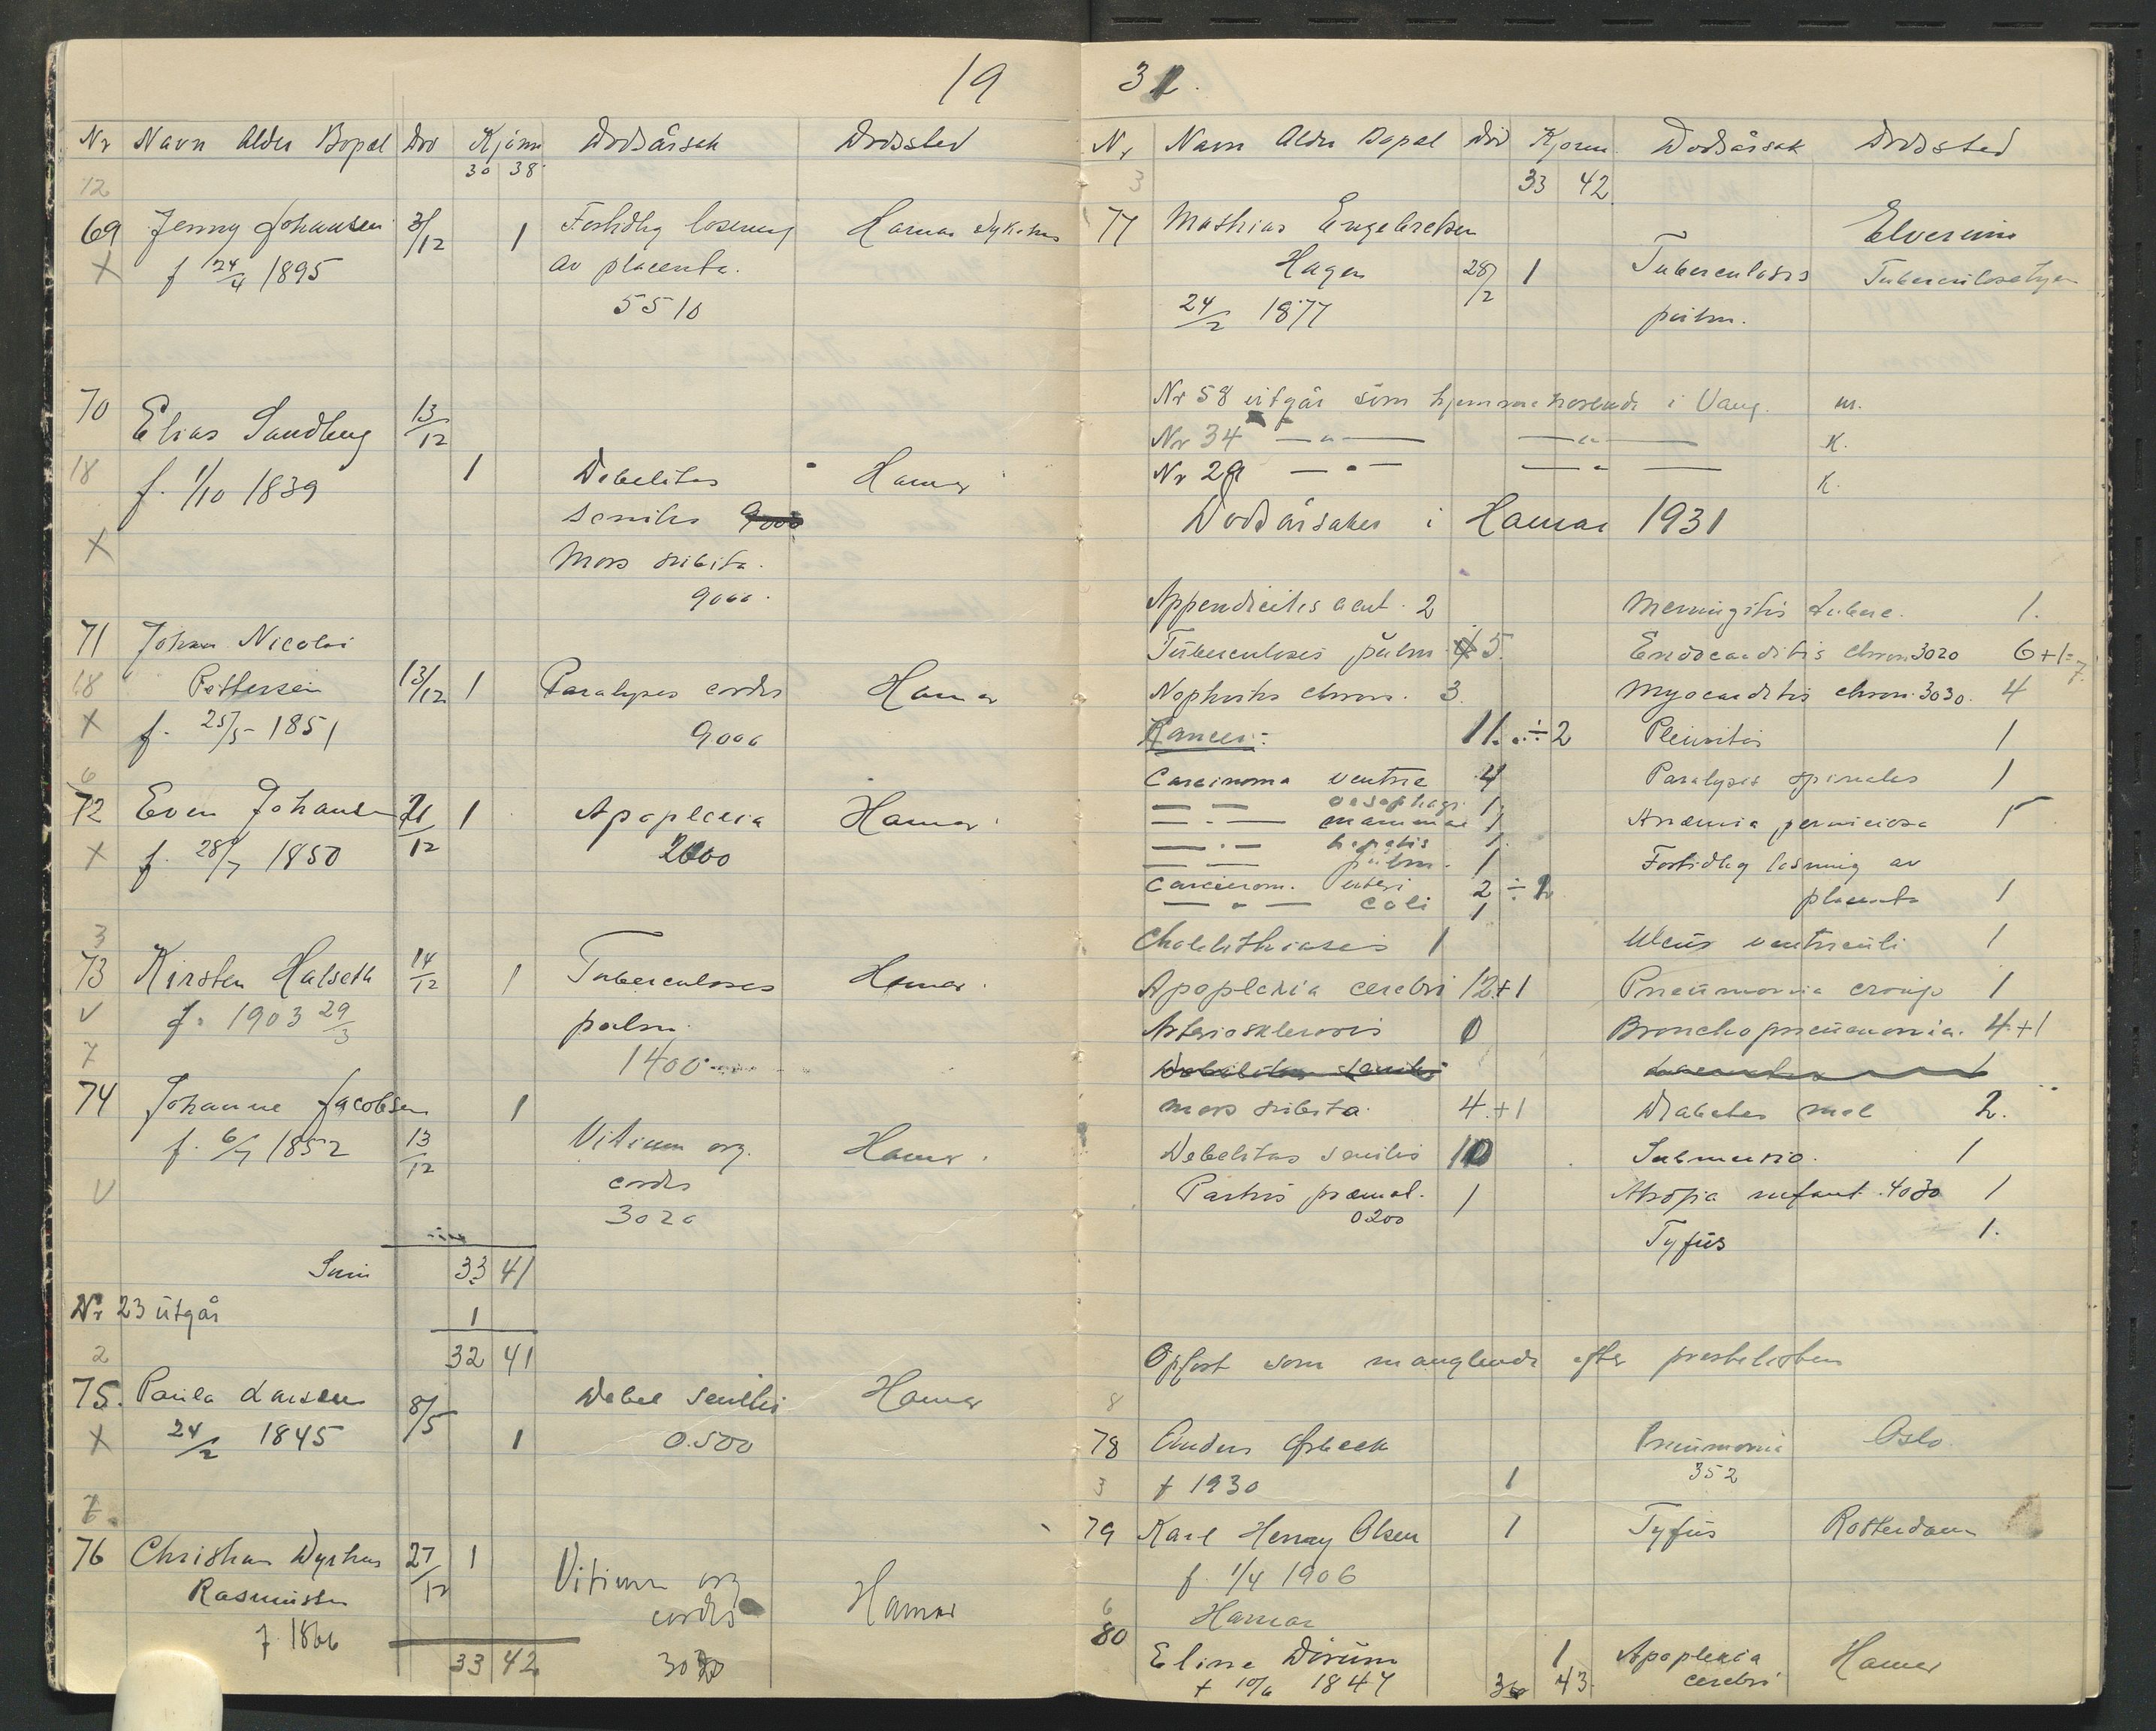 19
Nr Navn Alder Bopæl Død Kjønn Dødsårsak Dødssted
30 38
12
69 Jenny Johansen 3/12 1 Fortidlig løsning Hamar Sykehus
X f 24/4 1895 av placenta.
5510
70 Elias Sandberg 13/12
18 f. 1/10 1839 1 Debelitas Hamar
senilis 9000
X Mors subita.
9000.
71 Johan Nicolai
18 Pettersen 13/12 1 Paralysis cordis Hamar
X f. 25/5 1851 9000
6
72 Even Johansen 21/12 1 Apoplexia Hamar
X f. 28/7 1850 2000
3
73 Kirsten Halseth 14/12 1 Tuberculoses Hamar.
V f. 1903 29/3 pulm.
7 1400
74 Johanne Jacobsen 1
f. 6/7 1852 13/12 Vitium org. Hamar.
V cordis
3020
Sum 33 41
Nr 23 utgår 1
2 32 41
75. Paula Larsen 8/5 Debel senilis Hamar
X 24/2 1845 1 0.500
7
76 Christian Dyrhus 27/12 1 Vitium org Hamar
Rasmussen cordis
f. 1866
33 42 3020
31.
Nr Navn Alder Bopæl Død Kjønn Dødsårsak Dødssted
3 33 42
77 Mathias Engebretsen Elverum
Hagen 28/2 1 Tuberculosis Tuberculosehjem
24/2 1877 pulm.
Nr 58 utgår som hjemmehørende i Vang. m.
Nr 34 — " — — " — K.
Nr 29 — " — — " — K.
Dødsårsaker i Hamar 1931
Appendicitis acut. 2 Meningitis tuberc. 1.
Tuberculosis pulm 5. Endocarditis chron 3020 6+1=7.
Nephritis chron. 3. Myocarditis chron. 3030. 4
Kancer: 11. ÷2 Pleuritis 1
Carcinoma ventric 4 Paralysis spinales 1
— " — oesophagi 1
— " — mammae 1 Anæmia perniciosa 1
— " — hepatis 1.
— " — pulm. 1 Fortidlig løsning av
Carcinom. uteri 2 ÷ 2 placenta 1
— " — coli 1
Cholelithiasis 1 Ulcus ventriculi 1
Apoplexia cerebri 12+1 Pneumonia croup 1
Arteriosklerosis 0 Bronchopneumonia. 4+1
Debilitas senilis
mors subita. 4.+1 Diabetes mel 2.
Debelitas senilis 10 Submersio. 1
Partus præmat. 1 Atrofia infant. 4030 1
0200
Tyfus 1.
Opført som manglende efter prestelisten
8
78 Anders Ørbeck Pneumonia Oslo
3 + 1930 1 352
79 Karl Henry Olsen 1 Tyfus Rotterdam
f. 1/4 1906
6 Hamar
80 Eline Dørum 1 Apoplexia Hamar
+ 10/6 1847 43 cerebri